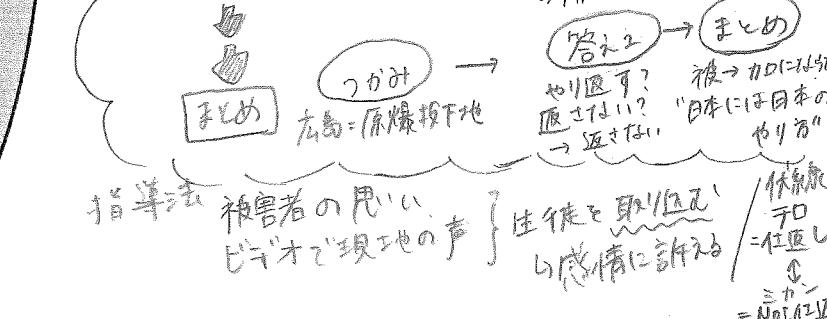 まとめ
つかみ
広島=原爆投下地
答え2
やり返す?
返さない?
→返さない
まとめ
被→加になら
"日本には日本の
やり方"
指導法
被害者の思い、
ビデオで現地の声
生徒を取り込む
↳感情に訴える
伏線
テロ
=仕返し
↕
ミカン